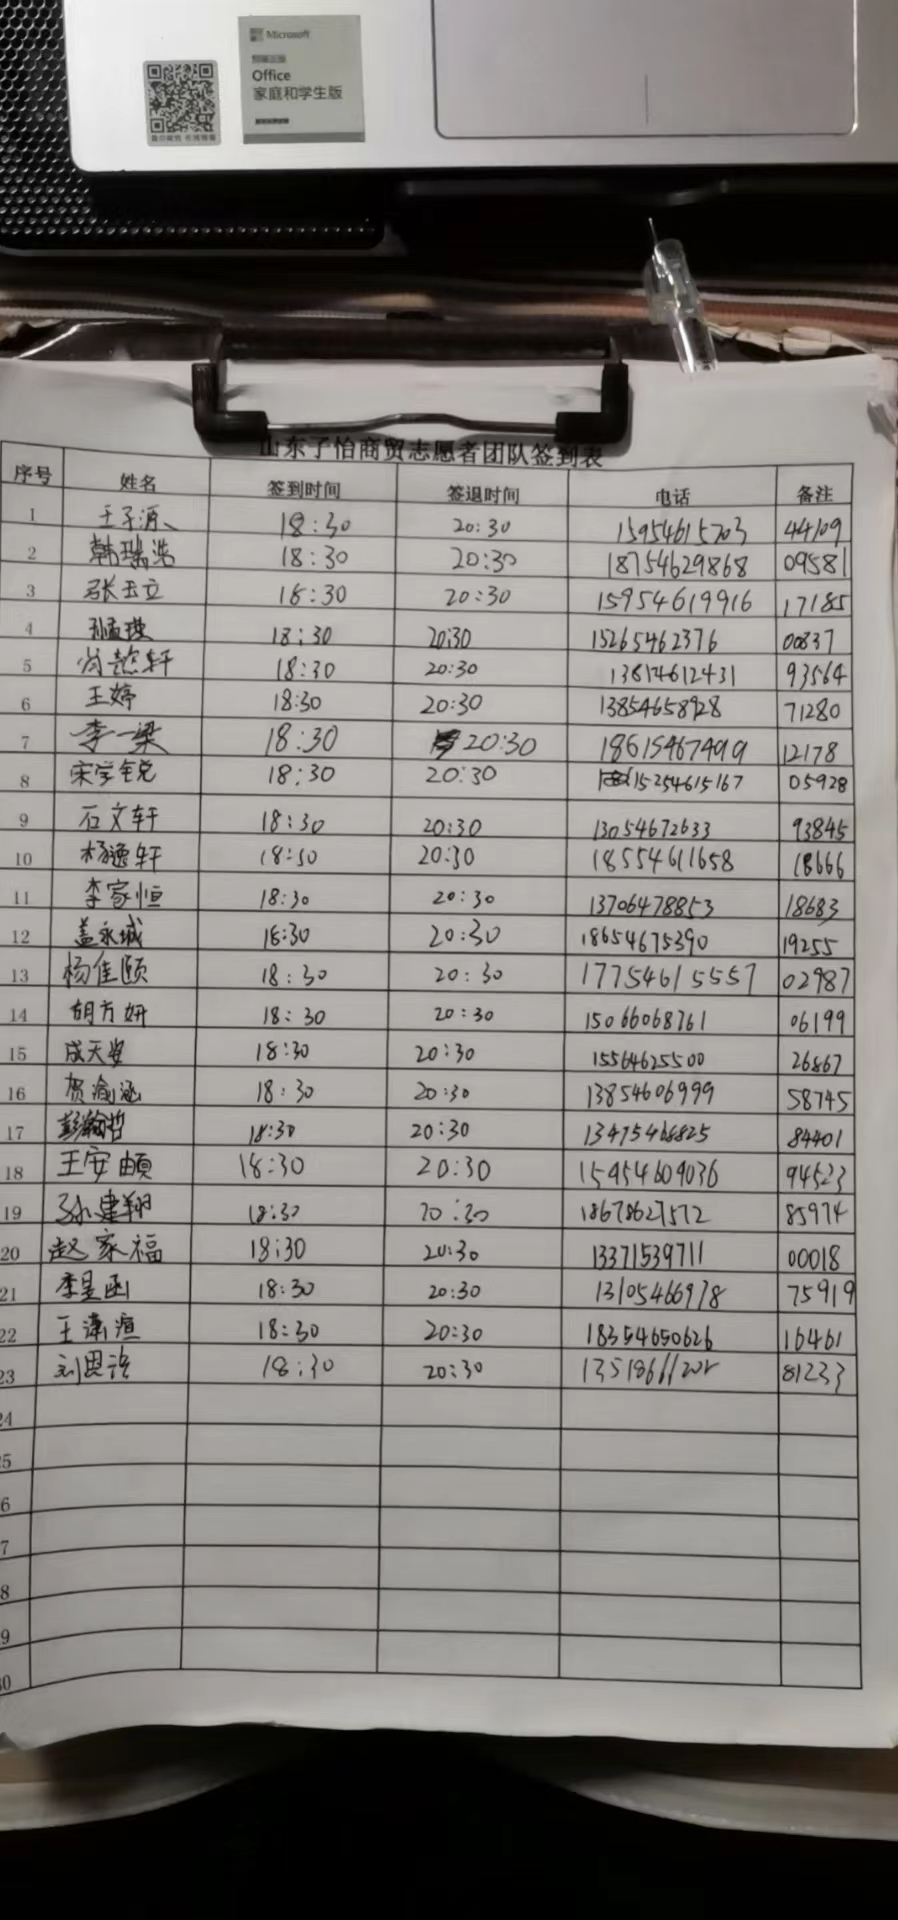 Microsoft
Office
家庭和学生版
山东子怡商贸志愿者团队签到表
序号 姓名 签到时间 签退时间 电话 备注
1 王子源 18:30 20:30 15954615703 44109
2 韩瑞浩 18:30 20:30 18754629868 09581
3 张玉立 18:30 20:30 15954619916 17185
4 18:30 20:30 15265462376 00837
5 18:30 20:30 13814612431 93564
6 王婷 18:30 20:30 13854658928 71280
7 李一梁 18:30 20:30 18615467499 12178
8 宋学锐 18:30 20:30 15254615167 05928
9 石文轩 18:30 20:30 13054672633 93845
10 杨逸轩 18:30 20:30 18554611658 18666
11 李家恒 18:30 20:30 13706478853 18683
12 盖永城 18:30 20:30 18654675390 19255
13 杨佳颐 18:30 20:30 17754615557 02987
14 胡方妍 18:30 20:30 15066068761 06199
15 成天姿 18:30 20:30 15564625500 26867
16 贺 18:30 20:30 13854606999 58745
17 彭翰哲 18:30 20:30 13475468825 84401
18 王安 18:30 20:30 15954609036 94523
19 孙建翔 18:30 20:30 18678627572 85974
20 赵家福 18:30 20:30 13371539711 00018
21 李昱函 18:30 20:30 13105466978 75919
22 王潇洹 18:30 20:30 18354650626 16461
23 刘恩 18:30 20:30 81233
24
5
6
7
8
9
30